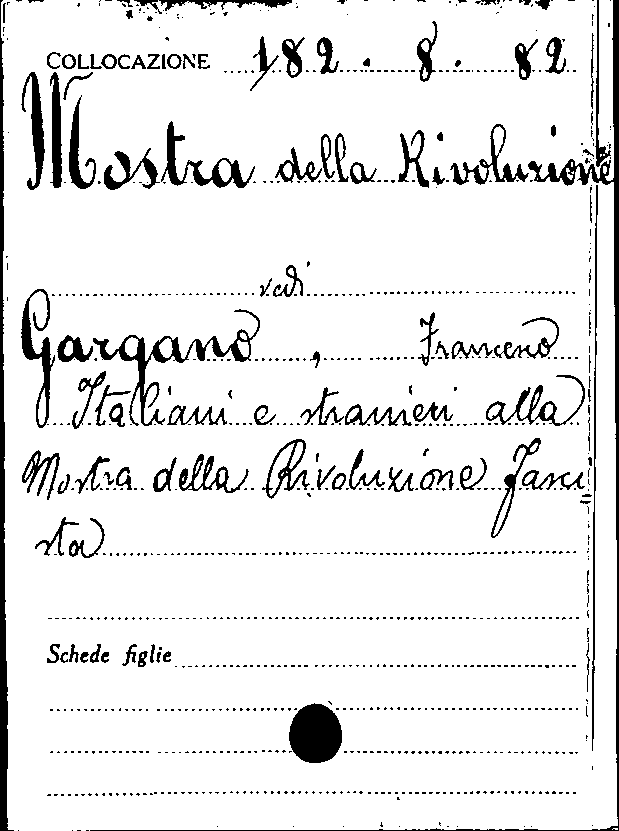 COLLOCAZIONE 182. 8. 82
Mostra della Rivoluzione
vedi
Gargano, Francesco
Italiani e stranieri alla
Mostra della Rivoluzione Fasci=
sta
Schede figlie